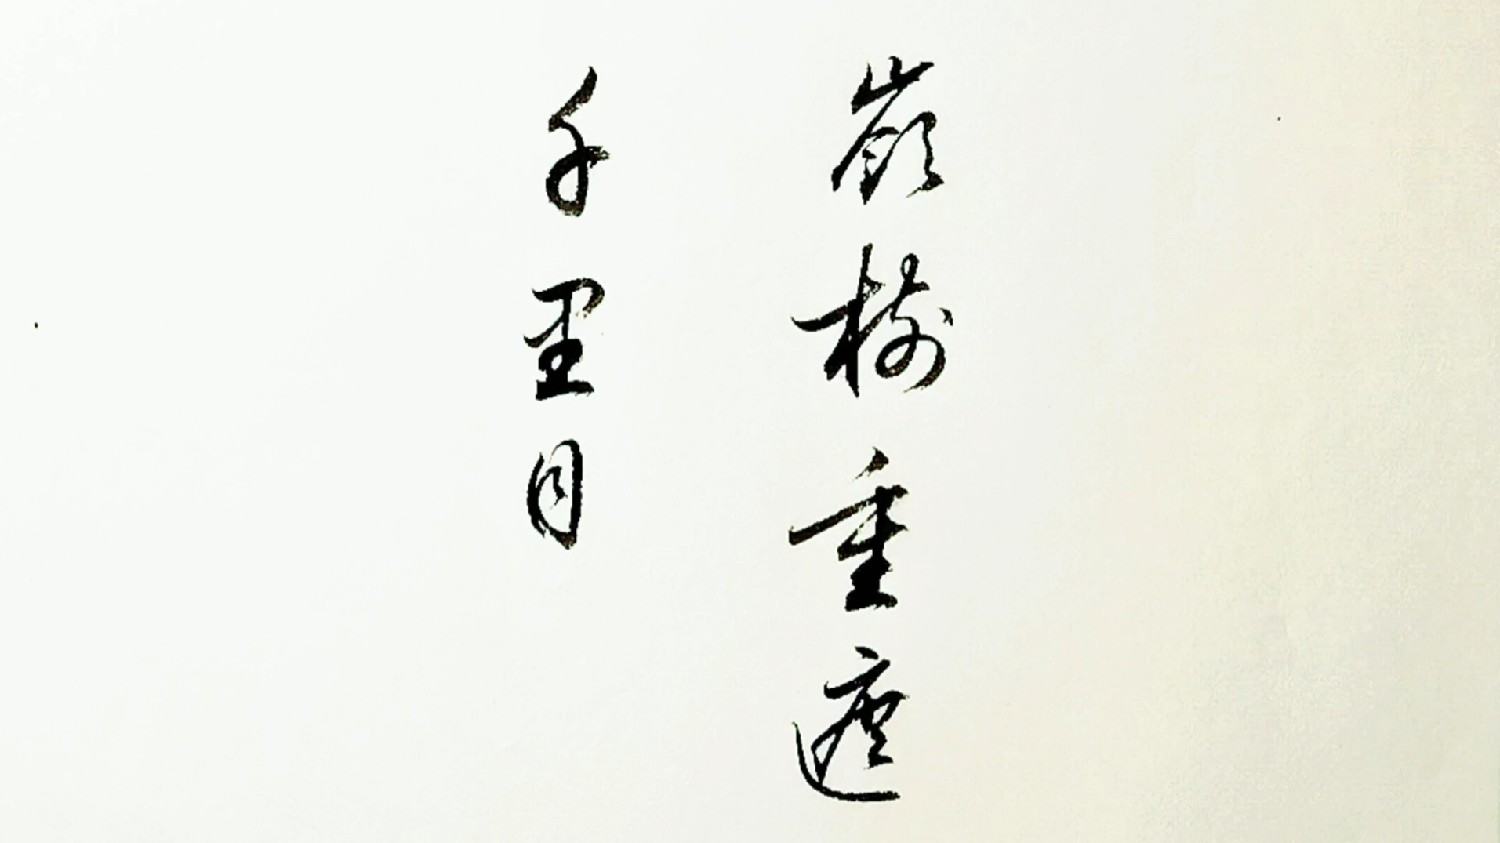 嶺樹重遮
千里目